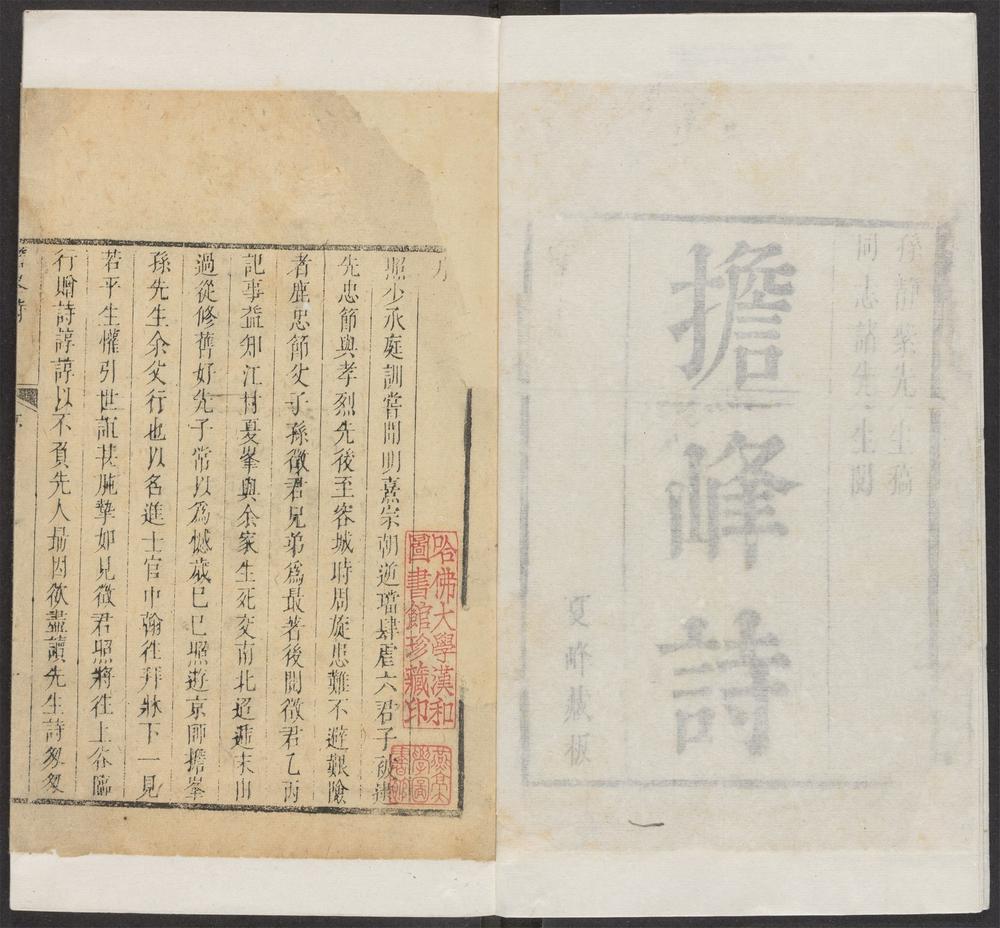 孫靜紫先生稿
同志諸先生閱
擔峰詩
夏峰藏板
序
照少承庭訓嘗聞明熹宗朝逆璫肆虐六君子被逮
先忠節與孝烈先後至容城時周旋患難不避艱險
者鹿忠節父子孫徵君兄弟爲最著後閱徵君乙丙
記事益知江村夏峯與余家生死交南北迢遞末由
過從修舊好先子常以爲憾歲己巳照遊京師擔峯
孫先生余父行也以名進士官中翰往拜牀下一見
若平生懽引世誼甚肫摯如見徵君照將往上谷臨
行贈詩諄諄以不負先人勗因欲盡讀先生詩匆匆
哈佛大學漢和
圖書館珍藏印